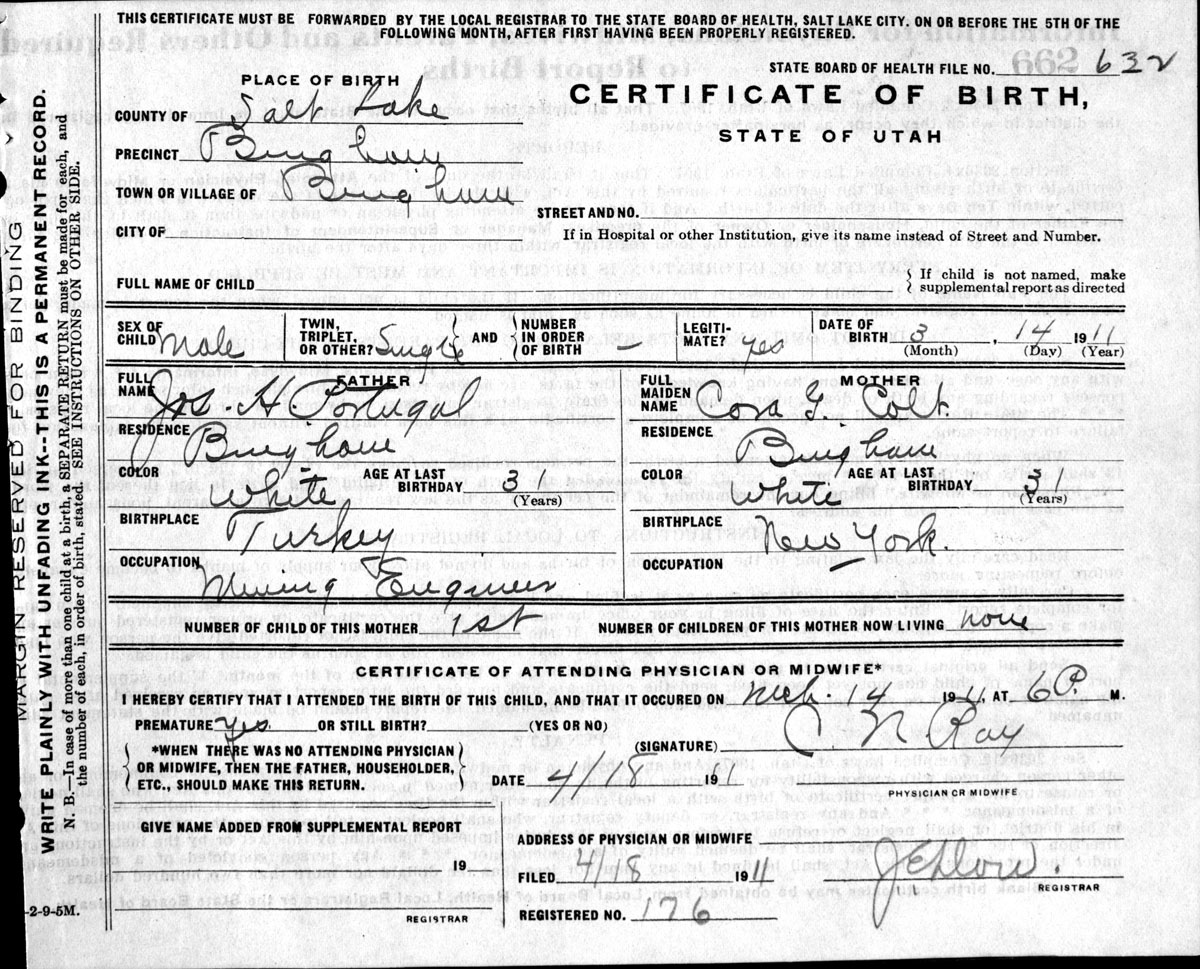 THIS CERTIFICATE MUST BE FORWARDED BY THE LOCAL REGISTRAR TO THE STATE BOARD OF HEALTH, SALT LAKE CITY, ON OR BEFORE THE 5TH OF THE
FOLLOWING MONTH, AFTER FIRST HAVING BEEN PROPERLY REGISTERED.
STATE BOARD OF HEALTH FILE NO. 632
PLACE OF BIRTH
CERTIFICATE OF BIRTH,
STATE OF UTAH
COUNTY OF Salt Lake
PRECINCT Bingham
TOWN OR VILLAGE OF Bingham
STREET AND NO.
CITY OF
If in Hospital or other Institution, give its name instead of Street and Number.
FULL NAME OF CHILD
If child is not named, make
supplemental report as directed
SEX OF CHILD Male
TWIN, TRIPLET, OR OTHER? Single AND NUMBER IN ORDER OF BIRTH –
LEGITI-MATE? yes
DATE OF BIRTH 3, 14 1911
(Month) (Day) (Year)
FATHER
FULL NAME Jos. H. Portugal
RESIDENCE Bingham
COLOR White AGE AT LAST BIRTHDAY 3
(Years)
BIRTHPLACE Turkey
OCCUPATION Mining Engineer
MOTHER
FULL MAIDEN NAME Cora L. Colt
RESIDENCE Bingham
COLOR White AGE AT LAST BIRTHDAY 31
(Years)
BIRTHPLACE New York.
OCCUPATION –
NUMBER OF CHILD OF THIS MOTHER 1st NUMBER OF CHILDREN OF THIS MOTHER NOW LIVING none
CERTIFICATE OF ATTENDING PHYSICIAN OR MIDWIFE*
I HEREBY CERTIFY THAT I ATTENDED THE BIRTH OF THIS CHILD, AND THAT IT OCCURED ON Mch 4 1911 AT 6 P. M.
PREMATURE yes OR STILL BIRTH? (YES OR NO)
(SIGNATURE) C. N. Ray
PHYSICIAN OR MIDWIFE
*WHEN THERE WAS NO ATTENDING PHYSICIAN
OR MIDWIFE, THEN THE FATHER, HOUSEHOLDER,
ETC., SHOULD MAKE THIS RETURN.
DATE 4/8 19
GIVE NAME ADDED FROM SUPPLEMENTAL REPORT
19
REGISTRAR
ADDRESS OF PHYSICIAN OR MIDWIFE
FILED 4/8 1911
REGISTRAR
REGISTERED NO. 176
MARGIN RESERVED FOR BINDING
WRITE PLAINLY WITH UNFADING INK--THIS IS A PERMANENT RECORD.
N. B.--In case of more than one child at a birth, a SEPARATE RETURN must be made for each, and
the number of each, in order of birth, stated. SEE INSTRUCTIONS ON OTHER SIDE.
-2-9-5M.